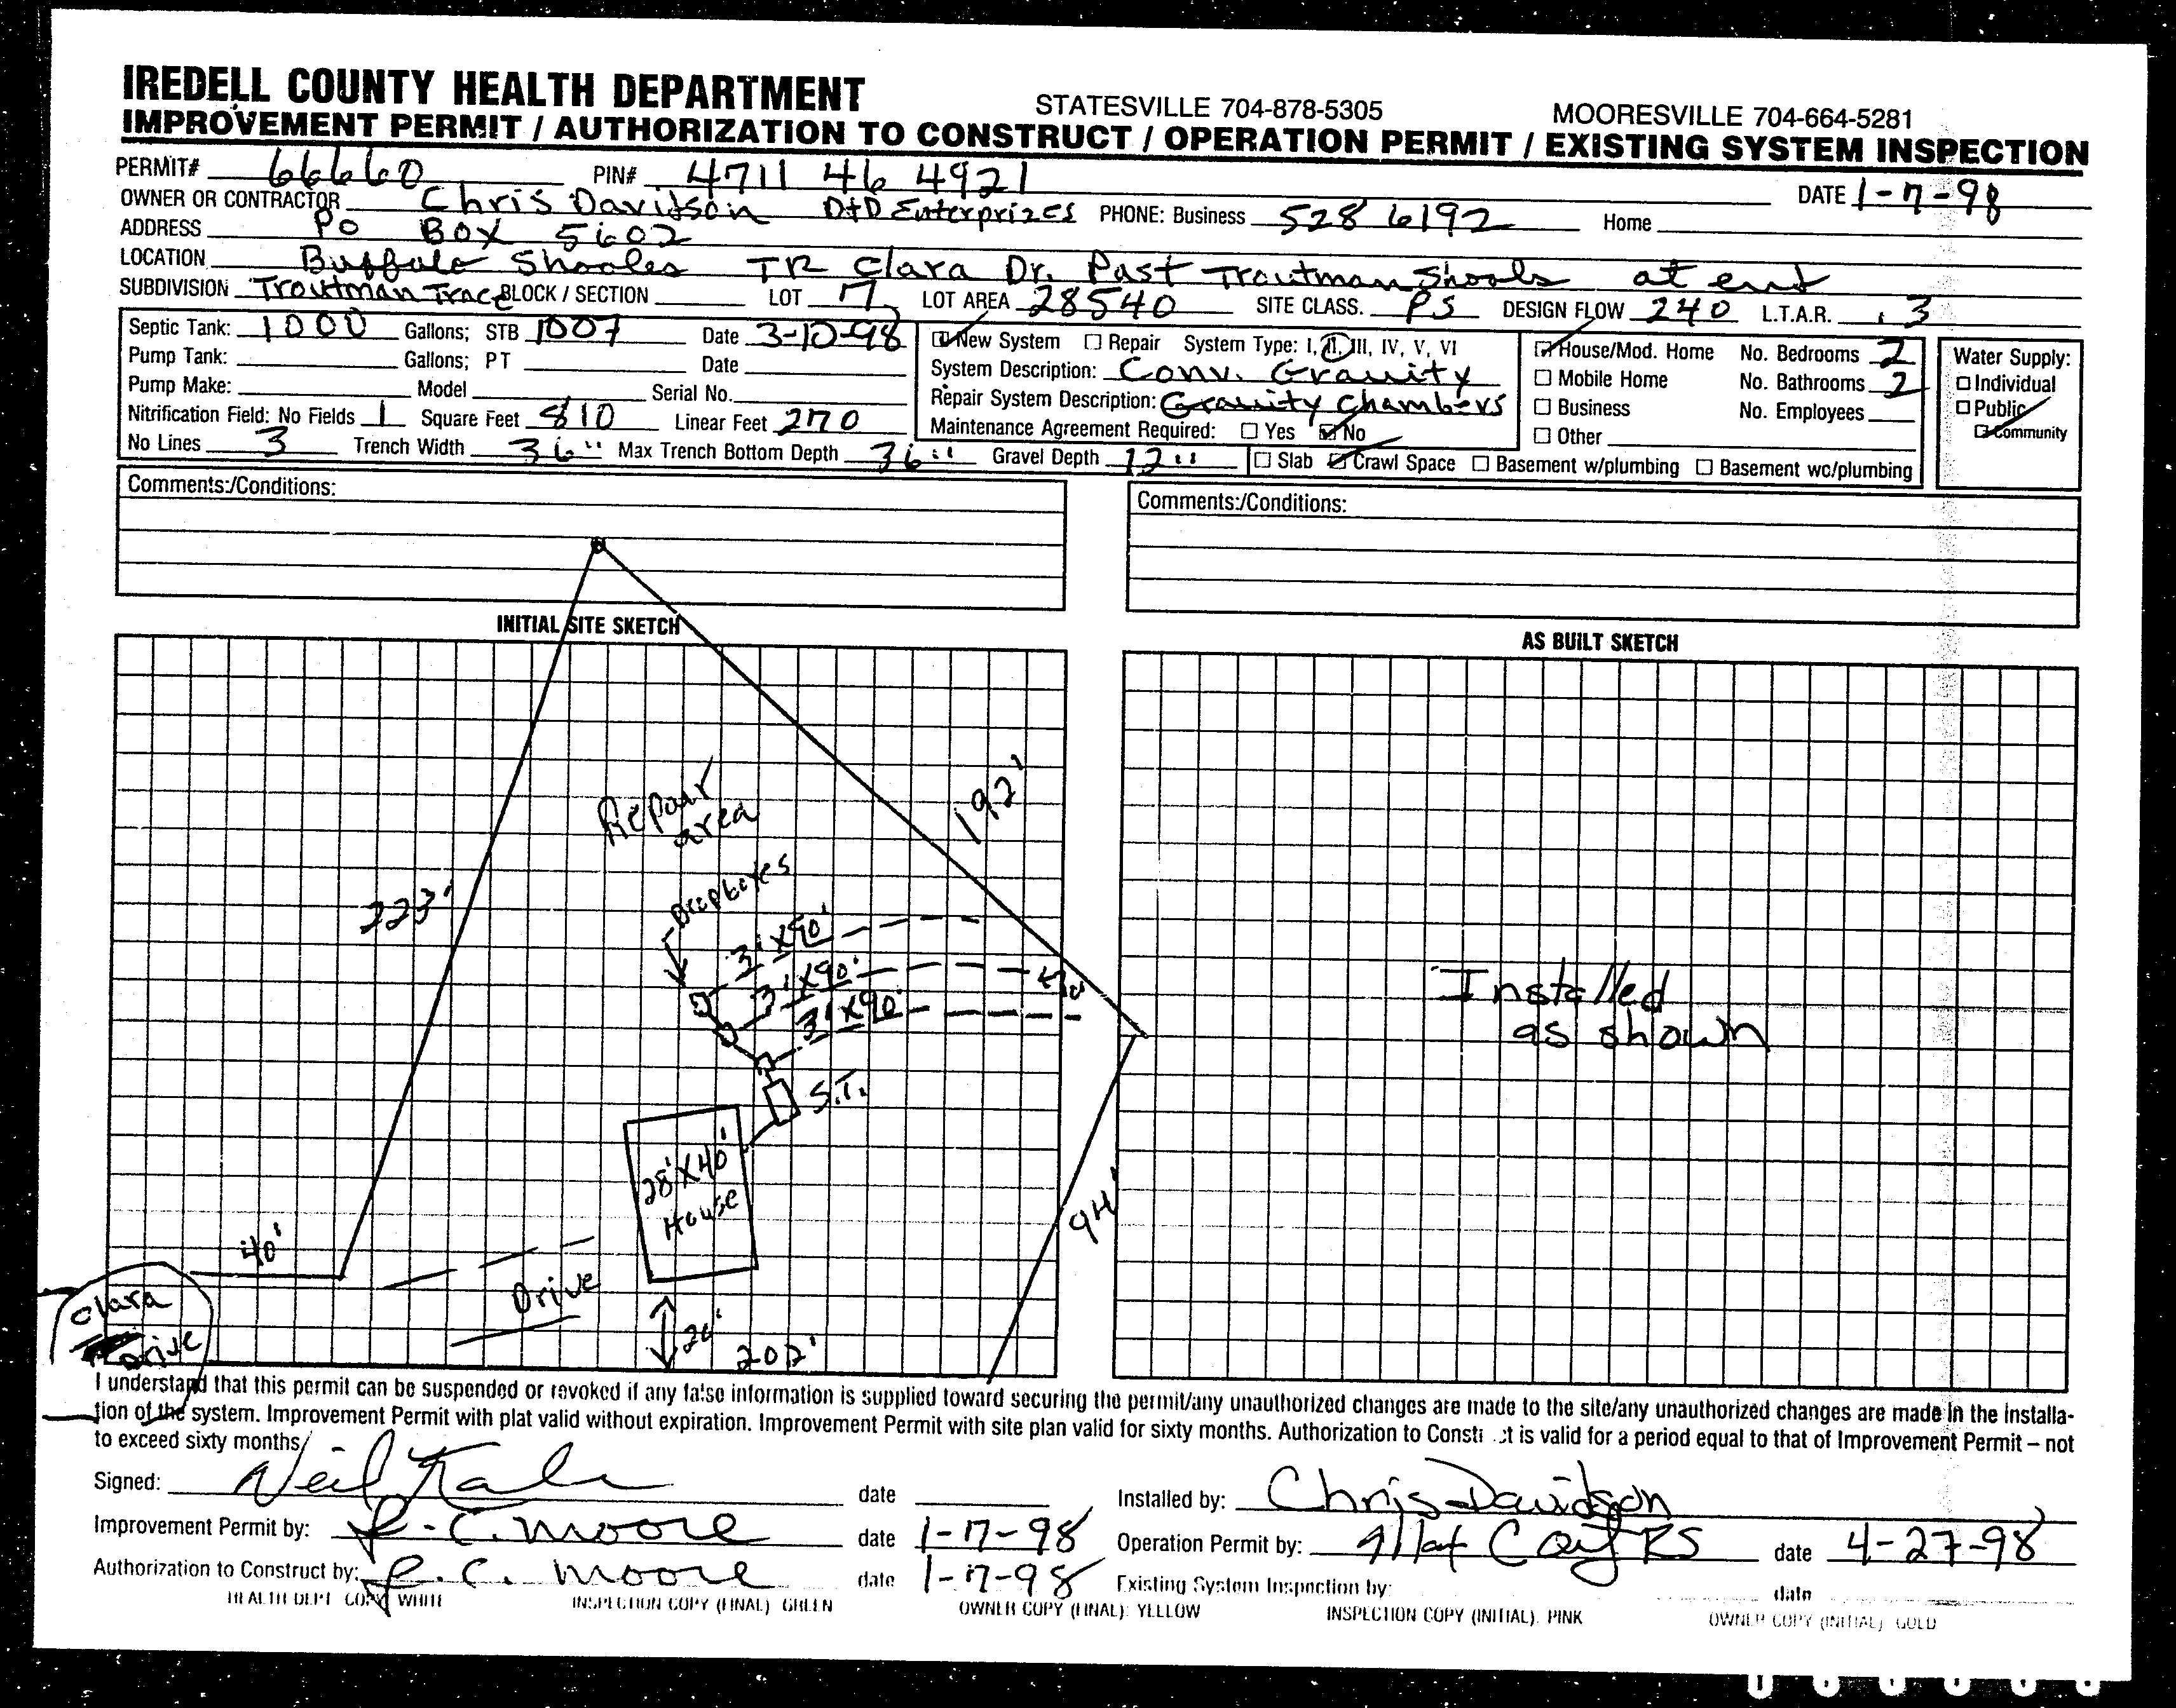 IREDELL COUNTY HEALTH DEPARTMENT
STATESVILLE 704-878-5305 MOORESVILLE 704-664-5281
IMPROVEMENT PERMIT / AUTHORIZATION TO CONSTRUCT / OPERATION PERMIT / EXISTING SYSTEM INSPECTION
PERMIT# 66660 PIN# 4711 46 4921 DATE 1-7-98
OWNER OR CONTRACTOR Chris Davidson D+D Enterprizes PHONE: Business 528 6192 Home
ADDRESS PO BOX 5602
LOCATION Buffalo Shoales TR Clara Dr. Past Troutman Shoals at end
SUBDIVISION Troutman Trace BLOCK / SECTION LOT 7 LOT AREA 28540 SITE CLASS. PS DESIGN FLOW 240 L.T.A.R. .3
Septic Tank: 1000 Gallons; STB 1007 Date 3-10-98
Pump Tank: Gallons; PT Date
Pump Make: Model Serial No.
Nitrification Field: No Fields 1 Square Feet 810 Linear Feet 270
No Lines 3 Trench Width 36" Max Trench Bottom Depth 36" Gravel Depth 12"
New System Repair System Type: I, II, III, IV, V, VI
System Description: Conv. Gravity
Repair System Description: Gravity Chambers
Maintenance Agreement Required: Yes No
Slab Crawl Space Basement w/plumbing Basement wc/plumbing
House/Mod. Home No. Bedrooms 2
Mobile Home No. Bathrooms 2
Business No. Employees
Other
Water Supply:
Individual
Public
Community
Comments:/Conditions:
Comments:/Conditions:
INITIAL SITE SKETCH
AS BUILT SKETCH
Repair
area
192'
223'
Dropboxes
3'X90'
3'X90'
3'X90'
S.T.
28'X40'
House
94'
40'
Clara
Drive
Drive
20'
202'
Installed
as shown
I understand that this permit can be suspended or revoked if any false information is supplied toward securing the permit/any unauthorized changes are made to the site/any unauthorized changes are made in the installa-
tion of the system. Improvement Permit with plat valid without expiration. Improvement Permit with site plan valid for sixty months. Authorization to Constr ct is valid for a period equal to that of Improvement Permit – not
to exceed sixty months
Signed: Neil date
Installed by: Chris Davidson
Improvement Permit by: R.C. Moore date 1-7-98
Operation Permit by: RS date 4-27-98
Authorization to Construct by: R.C. Moore date 1-7-98
Existing System Inspection by: date
HEALTH DEPT COPY WHITE INSPECTION COPY (FINAL) GREEN OWNER COPY (FINAL): YELLOW INSPECTION COPY (INITIAL). PINK OWNER COPY (INITIAL) GOLD